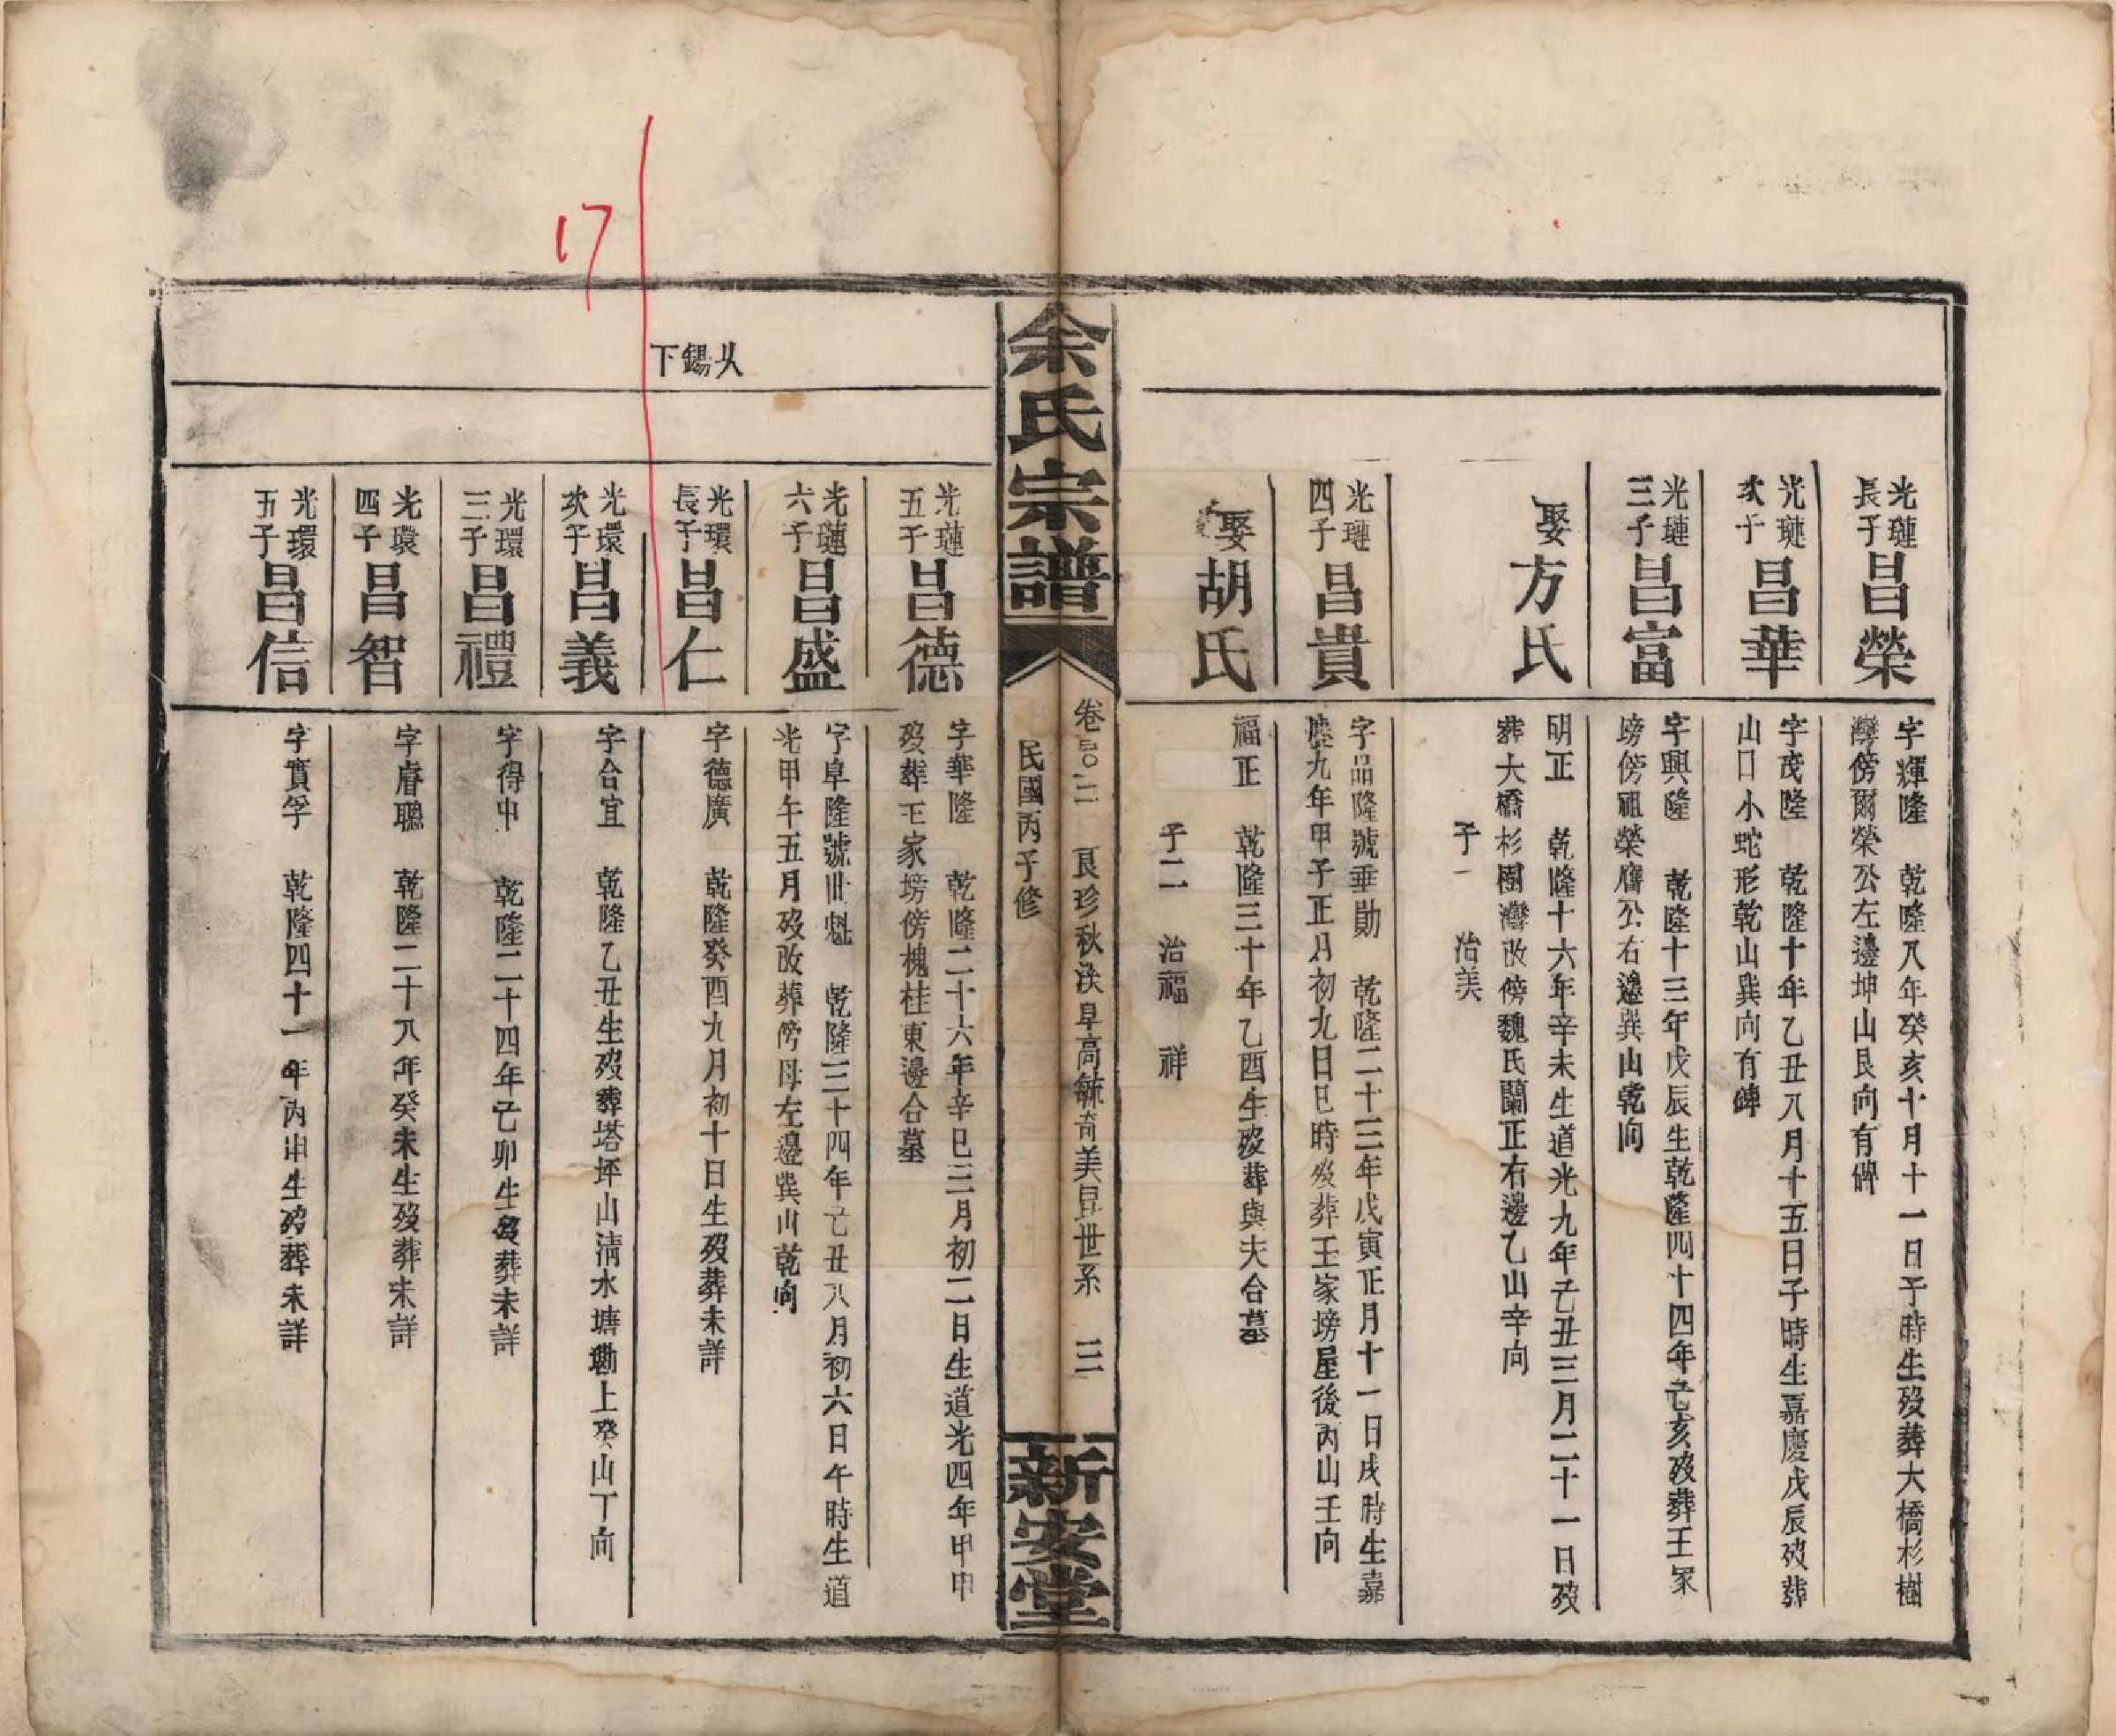 光璉
長子
昌榮
字輝隆　乾隆八年癸亥十月十一日子時生歿葬大橋杉樹
灣傍爾榮公左邊坤山艮向有碑
光璉
次子
昌華
字茂隆　乾隆十年乙丑八月十五日子時生嘉慶戊辰歿葬
山口小蛇形乾山巽向有碑
光璉
三子
昌富
字興隆　乾隆十三年戊辰生乾隆四十四年己亥歿葬王家
塝傍祖榮膺公右邊巽山乾向
娶
方氏
明正　乾隆十六年辛未生道光九年己丑三月二十一日歿
葬大橋杉樹灣改傍魏氏闌正右邊乙山辛向
子一　治美
光璉
四子
昌貴
字品隆號垂勛　乾隆二十三年戊寅正月十一日戌時生嘉
慶九年甲子正月初九日巳時歿葬王家塝屋後丙山壬向
娶
胡氏
福正　乾隆三十年乙酉生歿葬與夫合墓
子二　治福　祥
余氏宗譜
卷　二　良珍秋決阜高毓奇美昆世系　三
民國丙子修
新安堂
光璉
五子
昌德
字華隆　乾隆二十六年辛巳三月初二日生道光四年甲申
歿葬王家塝傍槐桂東邊合墓
光璉
六子
昌盛
字阜隆號世魁　乾隆三十四年己丑八月初六日午時生道
光甲午五月歿改葬傍母左邊巽山乾向
17
下錫火
光環
長子
昌仁
字德廣　乾隆癸酉九月初十日生歿葬未詳
光環
次子
昌義
字合宜　乾隆乙丑生歿葬塔坪山清水塘墈上癸山丁向
光環
三子
昌禮
字得中　乾隆二十四年己卯生歿葬未詳
光環
四子
昌智
字睿聰　乾隆二十八年癸未生歿葬未詳
光環
五子
昌信
字實孚　乾隆四十一年丙申生歿葬未詳